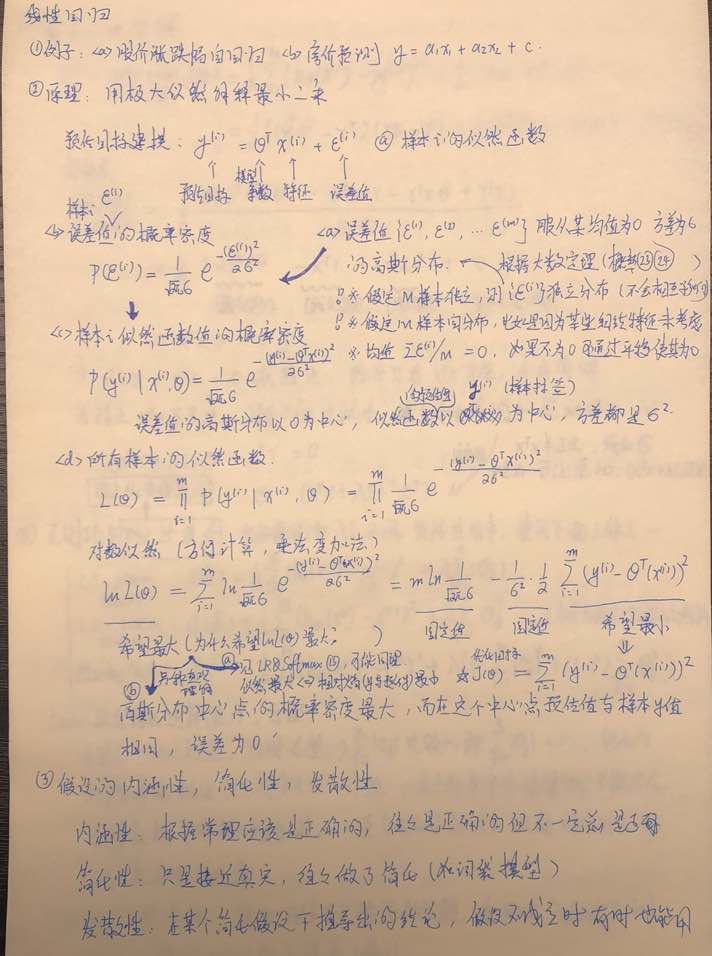 线性回归
①例子：<a>股价涨跌幅自回归 <b>房价预测 y = a₁x₁ + a₂x₂ + c.
②原理：用极大似然解释最小二乘
预估目标建模：y⁽ⁱ⁾ = θᵀx⁽ⁱ⁾ + ε⁽ⁱ⁾ ⓐ样本i的似然函数
预估目标 模型参数 特征 误差值
样本i ε⁽ⁱ⁾
<b>误差值的概率密度
P(ε⁽ⁱ⁾) = 1/√2π6 e^-(ε⁽ⁱ⁾)²/26²
<a>误差值{ε⁽¹⁾, ε⁽²⁾, … ε⁽ᵐ⁾}服从某均值为0 方差为6
的高斯分布. 根据大数定理(概率㉓㉔)
※假定M样本独立，则{ε⁽ⁱ⁾}独立分布(不会相互影响)
※假定m样本同分布，比如是因为某些细线特征未考虑
※均值 Σε⁽ⁱ⁾/m = 0，如果不为0可通过平移使其为0
<c>样本i似然函数值的概率密度
P(y⁽ⁱ⁾|x⁽ⁱ⁾,θ) = 1/√2π6 e^-(y⁽ⁱ⁾-θᵀx⁽ⁱ⁾)²/26²
y⁽ⁱ⁾(样本标签)
误差值的高斯分布以0为中心，似然函数以 为中心，方差都是6².
<d>所有样本的似然函数.
L(θ) = ∏ᵢ₌₁ᵐ P(y⁽ⁱ⁾|x⁽ⁱ⁾, θ) = ∏ᵢ₌₁ᵐ 1/√2π6 e^-(y⁽ⁱ⁾-θᵀx⁽ⁱ⁾)²/26²
对数似然(方便计算，乘法变加法)
lnL(θ) = Σᵢ₌₁ᵐ ln 1/√2π6 e^-(y⁽ⁱ⁾-θᵀ(x⁽ⁱ⁾))²/26² = m ln 1/√2π6 - 1/6² · 1/2 Σᵢ₌₁ᵐ (y⁽ⁱ⁾ - θᵀ(x⁽ⁱ⁾))²
固定值 固定值 希望最小
希望最大(为什么希望lnL(θ)最大？)
ⓐ见LR&Softmax⑮，
似然最大<=>相对熵(y与预估)最小
☆ 优化目标 J(θ) = Σᵢ₌₁ᵐ (y⁽ⁱ⁾ - θᵀ(x⁽ⁱ⁾))²
ⓑ高斯分布中心点的概率密度最大，而在这个中心点预估值与样本y值
相同，误差为0
③假设的内涵性，简化性，发散性
内涵性：根据常理应该是正确的，往往是正确的但不一定总是正确
简化性：只是接近真实，往往做了简化(如词袋模型)
发散性：在某个简化假设下推导出的结论，假设不成立时有时也能用